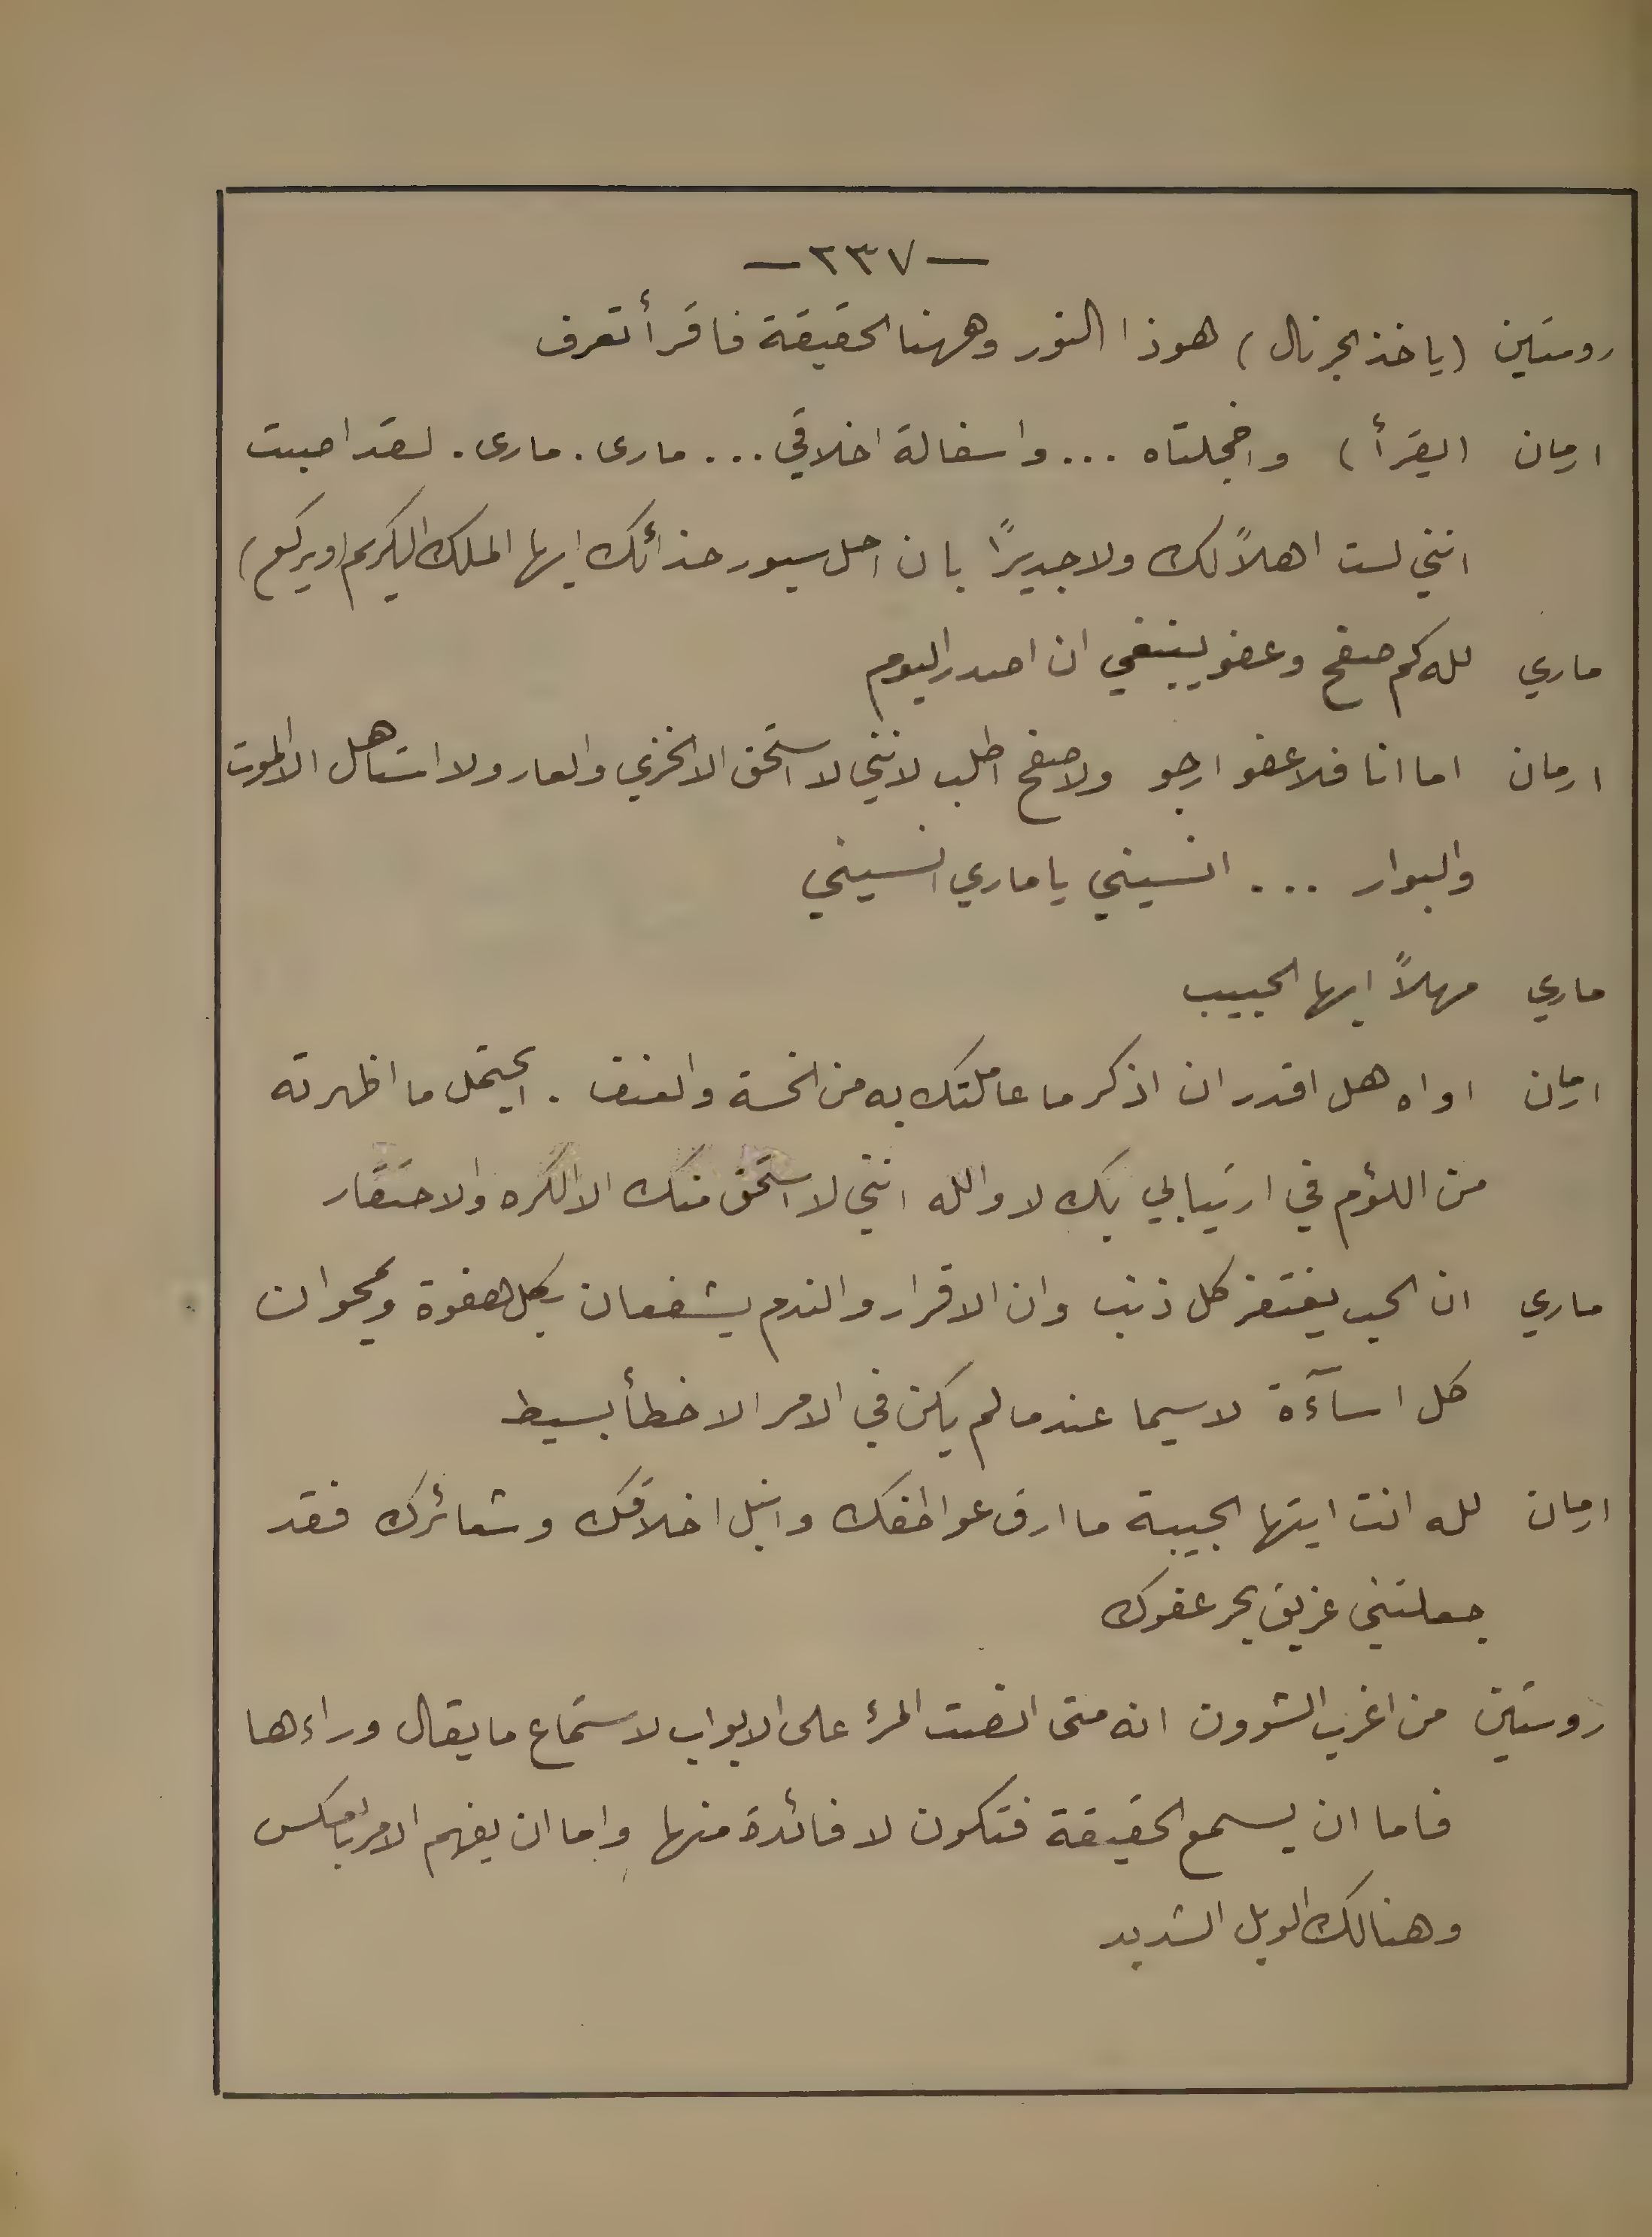 — ٢٣٧ —
روستين (ياخذ الجرنال) هوذا النور وههنا الحقيقة فاقرأ تعرف
ارمان (يقرأ) واخجلتاه ... واسفالة اخلاقي ... مارى . مارى . لقد اصبت
انني لست اهلاً لك ولا جديرًا بان احل سيور حذائك ايها الملك الكريم (ويركع)
ماري لله كم صفح وعفو ينبغي ان اصدر اليوم
ارمان اما انا فلا عفو ارجو ولا صفح اطلب لانني لا استحق الا الخزي والعار ولا استاهل الا الموت
والبوار ... انسيني يا ماري انسيني
ماري مهلاً ايها الحبيب
ارمان اواه هل اقدر ان اذكر ما عاملتك به من الخسة والعنف . ايحتمل ما اظهرته
من اللؤم في ارتيابي بك لا والله انني لا استحق منك الا الكره والاحتقار
ماري ان الحب يغتفر كل ذنب وان الاقرار والندم يشفعان بكل هفوة ويمحوان
كل اسآءة لاسيما عندما لم يكن في الامر الا خطأ بسيط
ارمان لله انت ايتها الحبيبة ما ارق عواطفك وانبل اخلاقك وشعائرك فقد
جعلتني غريق بحر عفوك
روستين من اغرب الشوون انه متى انصت المرء على الابواب لاستماع ما يقال وراءها
فاما ان يسمع الحقيقة فتكون لا فائدة منها واما ان يفهم الامر بالعكس
وهنالك الويل الشديد